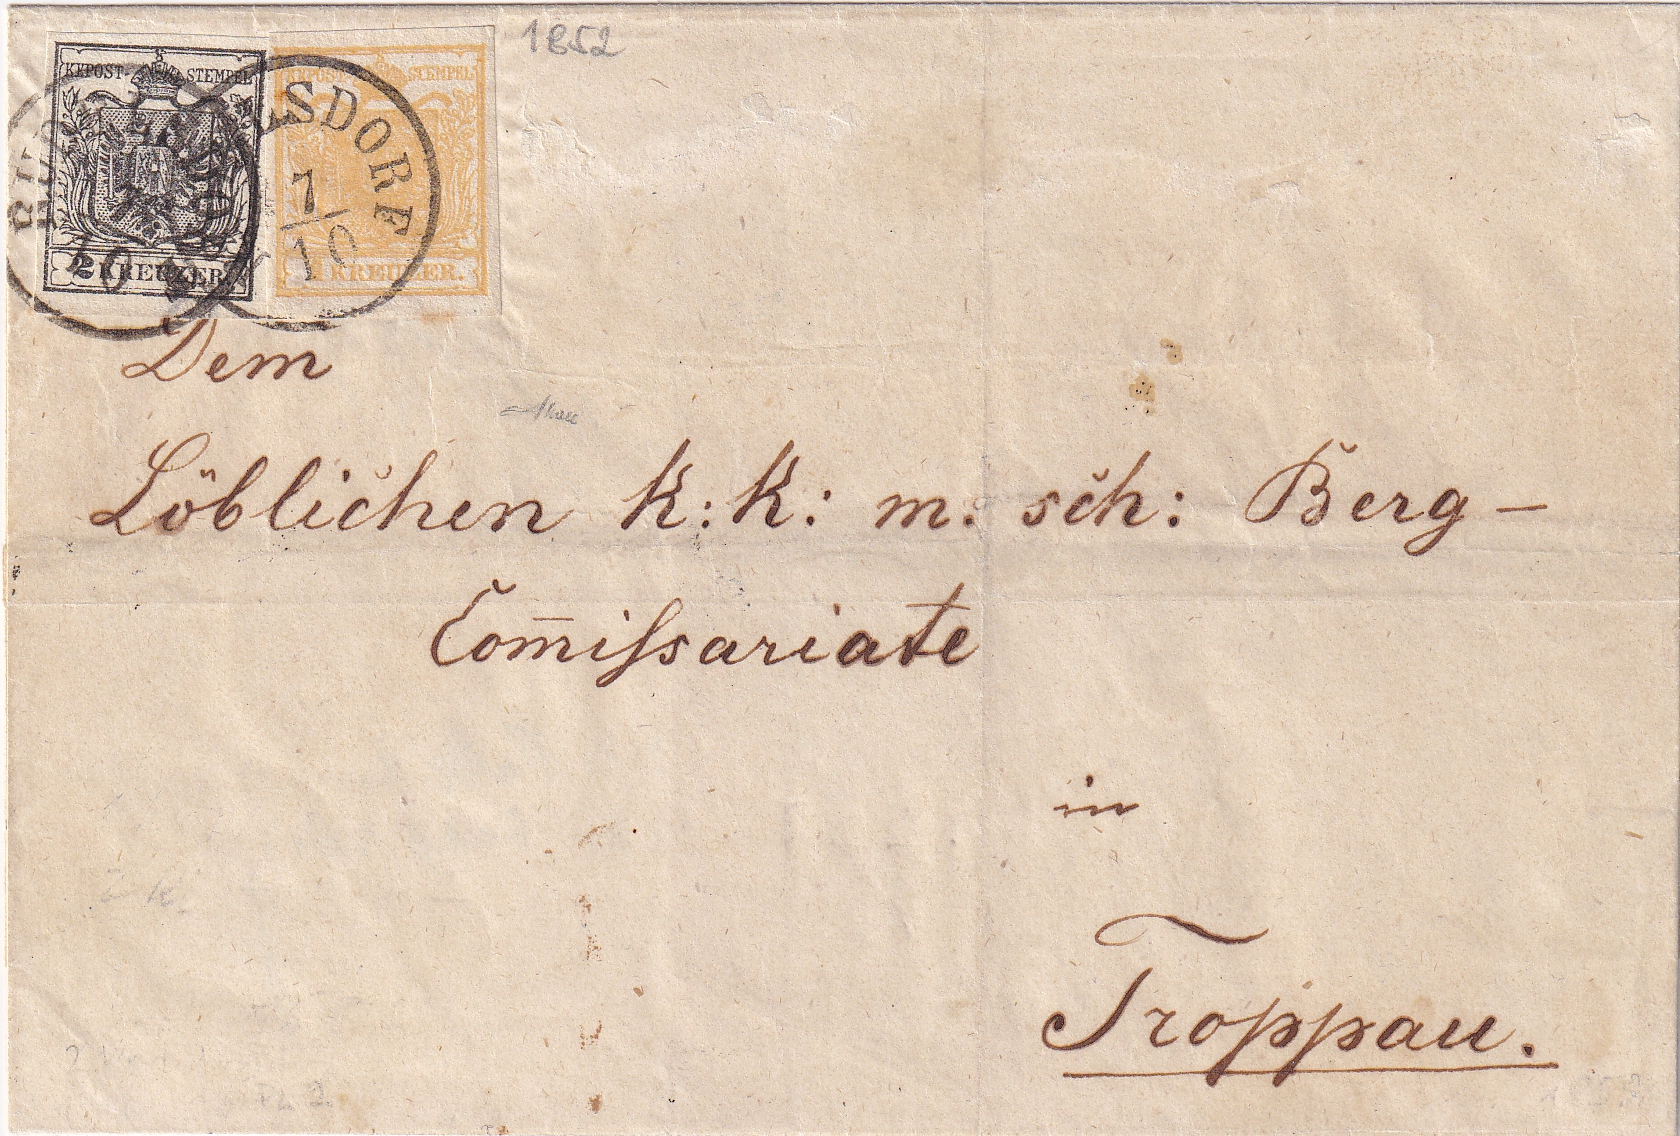 1852
KKPOST-STEMPEL
2 KREUZER.
KKPOST-STEMPEL
1 KREUZER.
LSDORF
7
10
Dem
Löblichen k: k: m. sch: Berg-
Com̄iſsariate
in
Troppau.